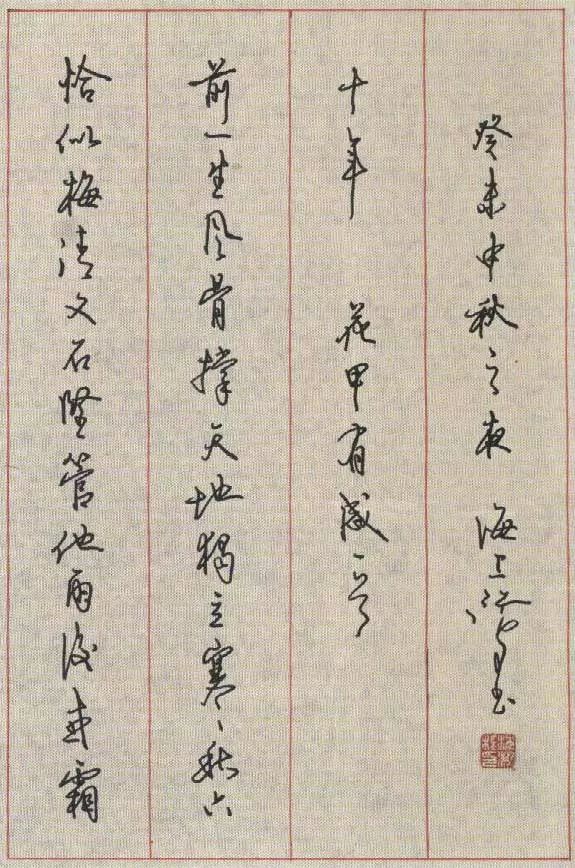 恰似梅清又石堅管他雨後或霜
前一生风骨撑天地獨立寒秋六
十年 花甲有感一首
癸未中秋之夜 海上书